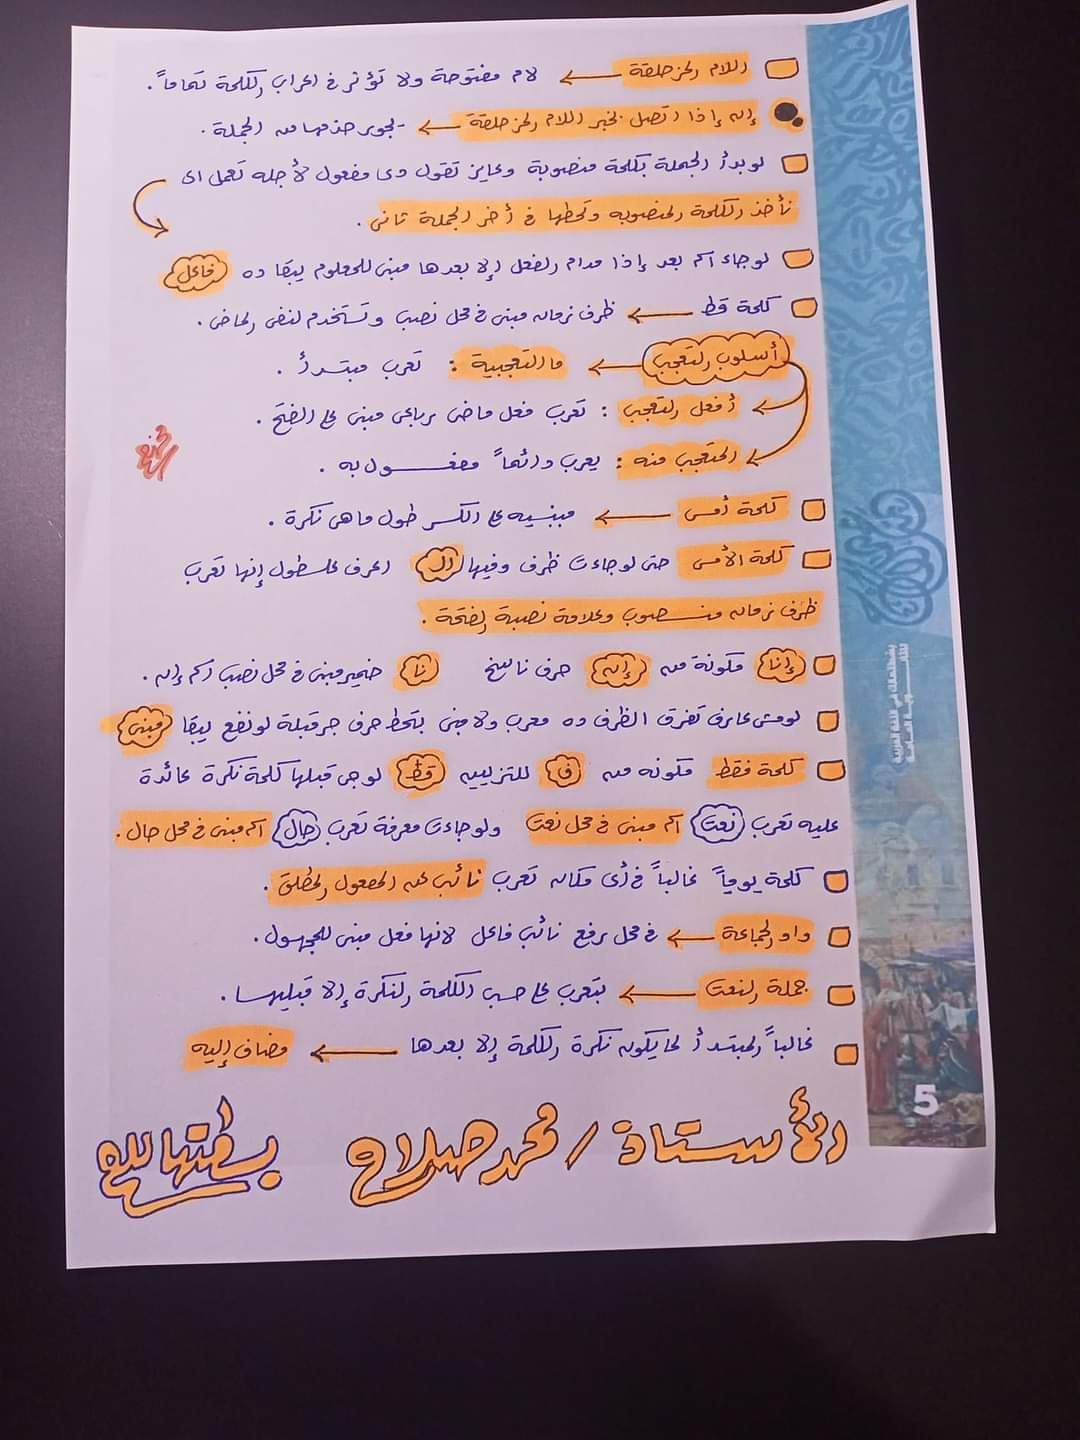 اللام المزحلقة ← لام مفتوحة ولا تؤثر في إعراب الكلمة تماماً.
إن إذا اتصل بخبر اللام المزحلقة ← يجوز حذفها من الجملة.
لو بدأ الجملة بكلمة منصوبة وعايز تقول دى مفعول لأجله تعمل اى
نأخذ الكلمة المنصوبه ونحطها في أخر الجملة تانى.
لو جاء اسم بعد إذا مدام الفعل إلا بعدها مبنى للمعلوم يبقا ده فاعل
كلمة قط ← ظرف زمان مبنى في محل نصب وتستخدم لنفى الماضى.
أسلوب التعجب ← ما التعجبية : تعرب مبتدأ.
أفعل التعجب : تعرب فعل ماضى رباعى مبنى على الفتح.
المتعجب منه : يعرب دائماً مفعول به.
كلمة أمس ← مبنيه على الكسر طول ما هى نكرة.
كلمة الأمس حتى لو جاءت ظرف وفيها ال اعرف علطول إنها تعرب
ظرف زمان منصوب وعلامة نصبة الفتحة.
إنا مكونة من إن حرف ناسخ نا ضمير مبنى في محل نصب اسم إن.
لو مش عارف تفرق الظرف ده معرب ولا مبنى بتحط حرف جر قبلة لو نفع يبقا مبنى
كلمة فقط مكونه من ف للتزيين قط لو جى قبلها كلمة نكرة عائدة
عليه تعرب نعت اسم مبنى في محل نعت ولو جاءت معرفة تعرب حال اسم مبنى في محل حال.
كلمة يومياً غالباً في أى مكان تعرب نائب عن المفعول المطلق.
واو الجماعة ← في محل رفع نائب فاعل لانها فعل مبنى للمجهول.
جملة النعت ← بتعرب على حسب الكلمة النكرة إلا قبليها.
غالباً المبتدأ لما يكون نكرة الكلمة إلا بعدها ← مضاف إليه
الأستاذ / محمد صلاح بسطتهالك
5